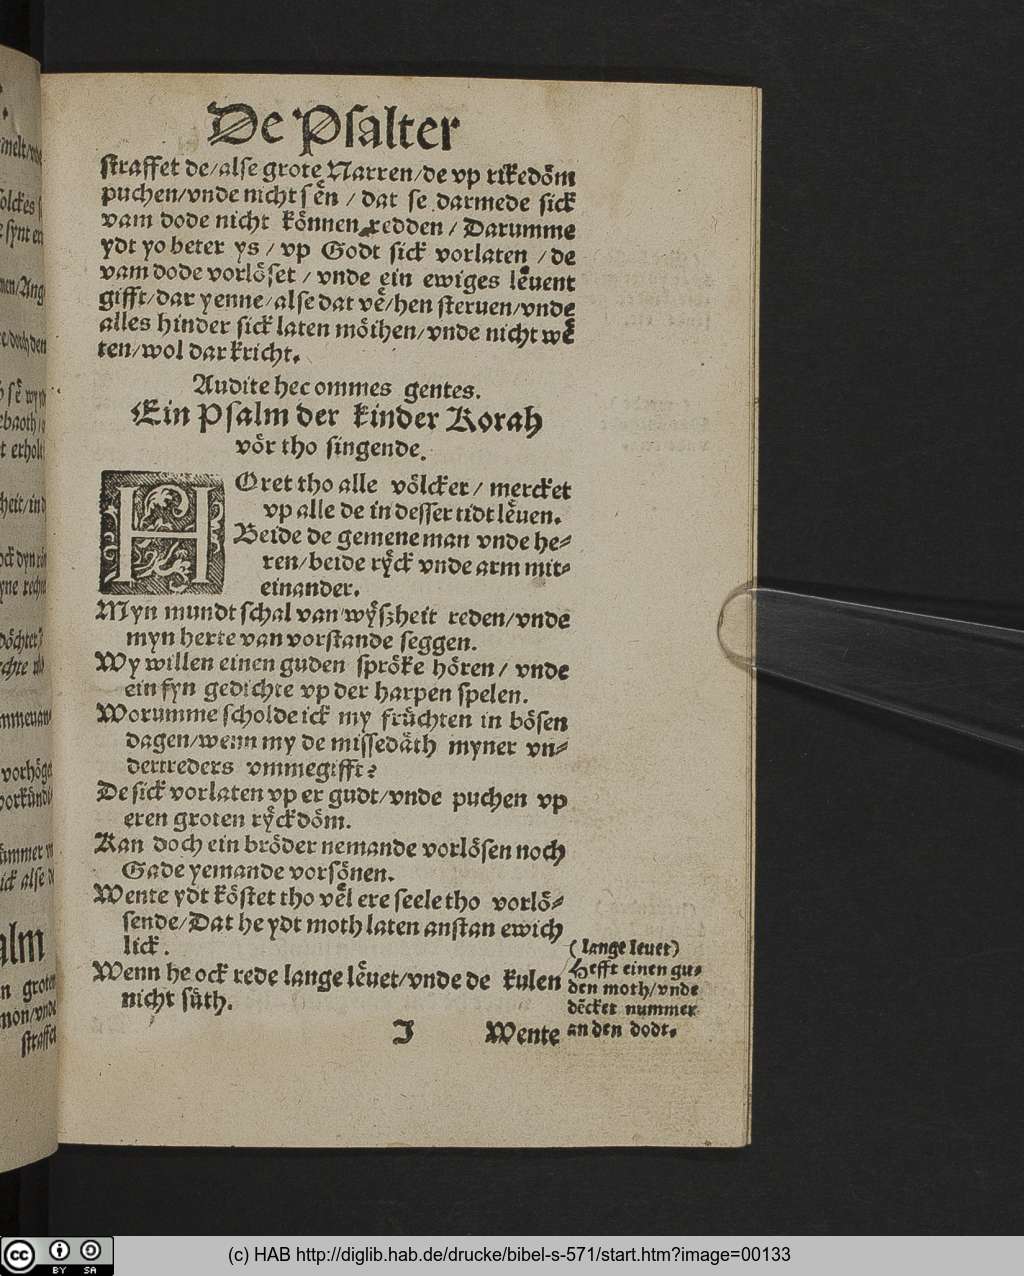 De Psalter
straffet de/alse grote Narren/de vp rikedoͤm
puchen/vnde nicht seͤn / dat se darmede sick
vam dode nicht koͤnnen redden / Darumme
ydt yo beter ys / vp Godt sick vorlaten / de
vam dode vorloͤset / vnde ein ewiges leͤuent
gifft/dar yenne/alse dat veͤ/hen steruen/vnde
alles hinder sick laten moͤihen/vnde nicht weͤ
ten/wol dar kricht.
Audite hec ommes gentes.
Ein Psalm der kinder Korah
voͤr tho singende.
HOret tho alle voͤlcker / mercket
vp alle de in desser tidt leͤuen.
Beide de gemene man vnde he-
ren/beide ryͤck vnde arm mit-
einander.
Myn mundt schal van wyͤszheit reden/vnde
myn herte van vorstande seggen.
Wy willen einen guden sproͤke hoͤren / vnde
ein fyn gedichte vp der harpen spelen.
Worumme scholde ick my fruͤchten in boͤsen
dagen/wenn my de missedaͤth myner vn-
dertreders vmmegifft?
De sick vorlaten vp er gudt/vnde puchen vp
eren groten ryͤckdoͤm.
Kan doch ein broͤder nemande vorloͤsen noch
Gade yemande vorsoͤnen.
Wente ydt koͤstet tho veͤl ere seele tho vorloͤ-
sende/Dat he ydt moth laten anstan ewich
lick.
Wenn he ock rede lange leͤuet/vnde de kulen
nicht suͤth.
(lange leuet)
Hefft einen gu-
den moth/vnde
deͤcket nummer
an den dodt.
J Wente
alm
straffet
CC BY SA
(c) HAB http://diglib.hab.de/drucke/bibel-s-571/start.htm?image=00133